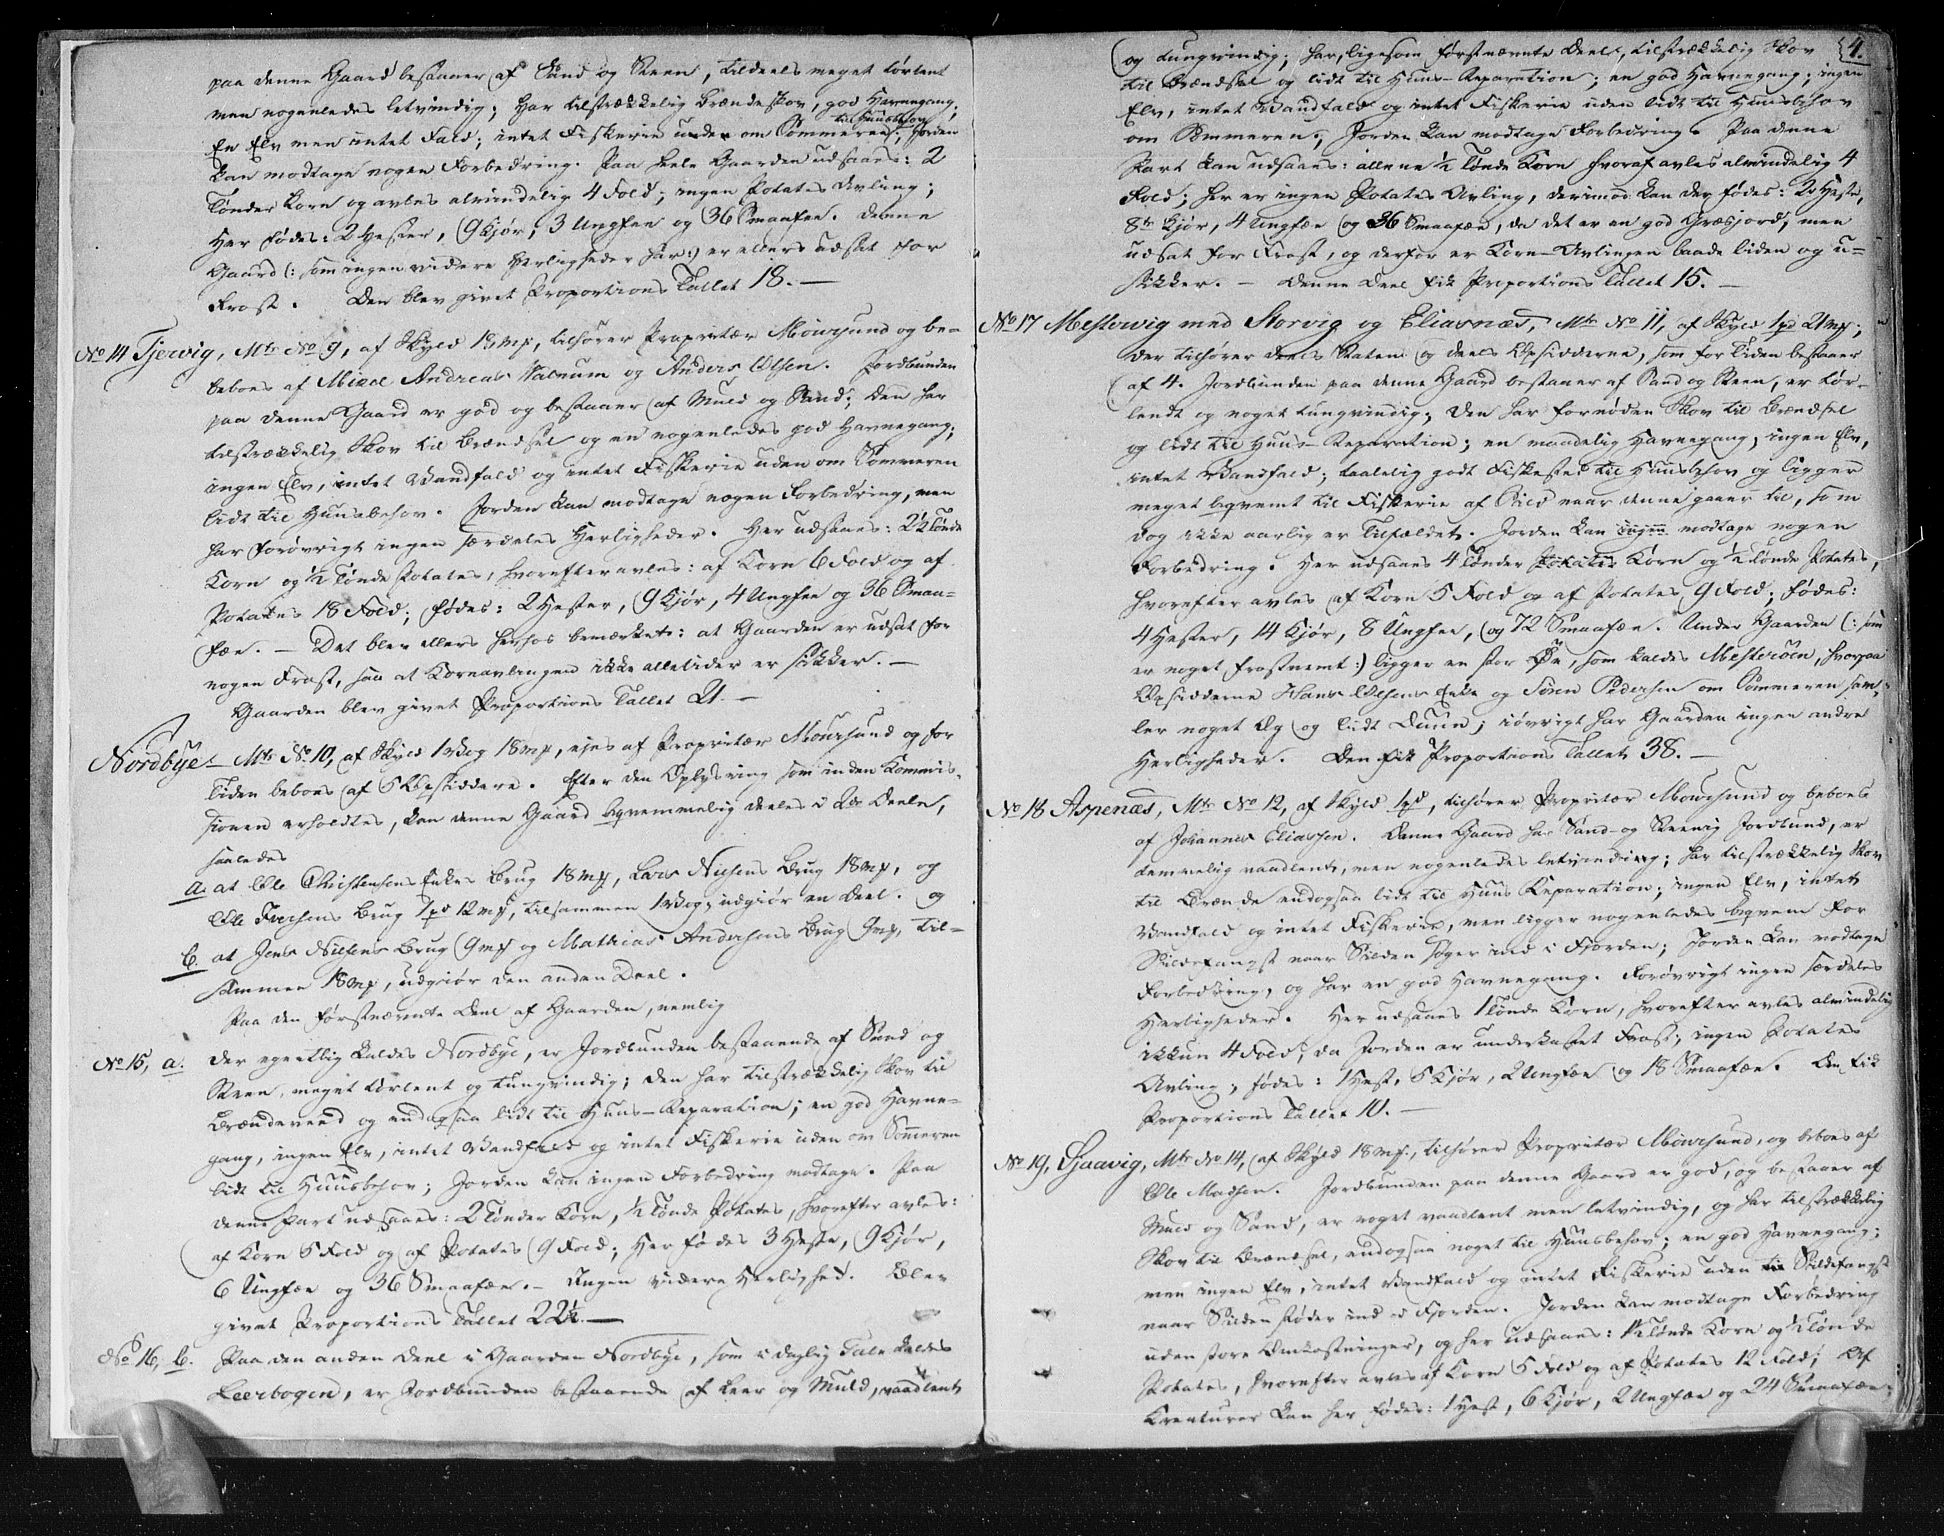 paa denne Gaard bestaaer af Sand og Steen, tildeels meget tørlent
men nogenledes letvindig; har tilstrækkelig Brændeskov, god Havnegang;
En Elv men intet Fald; intet Fiskerie uden om Sommeren til Huusbehov, Jorden
kan modtage nogen Forbedring. Paa hele Gaarden udsaaes: 2
Tønder Korn og avles almindelig 4 Fold; ingen Potates Avling;
Her fødes: 2 Hester, 9 Kjør, 3 Ungfee og 36 Smaafee. Denne
Gaard (: som ingen videre Herligheder har :) er ellers udsat for
Frost. Den blev givet Proportions Tallet 18. —
No 14 Tjervig, Mtr No 9, af Skyld 18 mp, tilhører Proprietær Moursund og be-
boes af Andreas Valnum og Anders Olsen. Jordbunden
paa denne Gaard er god og bestaaer af Muld og Sand; den har
tilstrækkelig Skov til Brændsel og en nogenledes god Havnegang;
ingen Elv, intet Vandfald og intet Fiskerie uden om Sommeren
lidt til Huusbehov. Jorden kan modtage nogen Forbedring, men
har forøvrigt ingen særdeles Herligheder. Her udsaaes: 2½ Tønde
Korn og ½ Tønde Potates, hvorefter avles: af Korn 6 Fold og af
Potates 18 Fold; fødes: 2 Hester, 9 Kjør, 4 Ungfee og 36 Smaa-
fæe. — Det blev ellers herhos bemærket: at Gaarden er udsat for
nogen Frost, saa at Kornavlingen ikke alletider er sikker. —
Gaarden blev givet Proportions Tallet 21. —
Nordbye — Mtr No 10, af Skyld 1 Vog 18 mp, ejes af Proprietær Moursund og for
Tiden beboes af 5 Opsiddere. Efter den Oplysning som inden Kommis-
sionen erholdtes, kan denne Gaard beqvemmelig deeles i 2de Deele,
saaledes
a. at Ole Christensens Enkes Brug 18 mp, Lars Nielsens Brug 18 mp, og
Ole Iversens Brug 1 pd 12 mp, tilsammen 1 Vog, udgiør en Deel. og
b. at Jens Nielsens Brug 9 mp og Mathias Andersens Brug 9 mp, til-
sammen 18 mp, udgiør den anden Deel.
Paa den førstnævnte Deel af Gaarden, nemlig
No 15, a. der egentlig kaldes Nordbye, er Jordbunden bestaaende af Sand og
Steen, meget tørlent og tungvindig; den har tilstrækkelig Skov til
Brændeveed og endogsaa lidt til Huus-Reparation; en god Havne-
gang, ingen Elv, intet Vandfald og intet Fiskerie uden om Sommeren
lidt til Huusbehov; Jorden kan ingen Forbedring modtage. Paa
denne Part udsaaes: 2 Tønder Korn, ½ Tønde Potates, hvorefter avles:
af Korn 5 Fold og af Potates 9 Fold; Her fødes 3 Heste, 9 Kjør,
6 Ungfæe og 36 Smaafæe. — Ingen videre Herlighed. Blev
givet Proportions Tallet 22½. —
No 16, b. Paa den anden Deel i Gaarden Nordbye, som i daglig Tale kaldes
Leerbogen, er Jordbunden bestaaende af Leer og Muld, vaadlent
4.
og tungvindig; har, ligesom førstnævnte Deel, tilstrækkelig Skov
til Brændsel og lidt til Huus-Reparation; en god Havnegang; ingen
Elv, intet Vandfald og intet Fiskerie uden lidt til Huusbehov
om Sommeren; Jorden kan modtage Forbedring. Paa denne
Part kan udsaaes: allene ½ Tønde Korn hvoraf avles almindelig 4
Fold; her er ingen Potates Avling, derimod kan der fødes: 2 Heste,
8te Kjør, 4 Ungfæe og 36 Smaafæe, da det er en god Græsjord, men
udsat for Frost, og derfor er Korn-Avlingen baade liden og u-
sikker. — Denne Deel fik Proportions Tallet 15. —
No 17 Mestervig med Storvig og Eliasnæs, Mtr No 11, af Skyld 1 pd 21 mp,
der tilhører deels Staten og deels Opsidderne, som for Tiden bestaaer
af 4. Jordbunden paa denne Gaard bestaaer af Sand og Steen, er tør-
lendt og noget tungvindig; den har fornøden Skov til Brændsel
og lidt til Huus-Reparation; en maadelig Havnegang, ingen Elv,
intet Vandfald; taalelig godt Fiskested til Huusbehov og ligger
meget beqvemt til Fiskerie af Sild naar denne gaaer til, som
dog ikke aarlig er Tilfældet. Jorden kan ingen modtage nogen
Forbedring. Her udsaaes 4 Tønder Potates Korn og ½ Tønde Potates,
hvorefter avles af Korn 5 Fold og af Potates 9 Fold; fødes:
4 Hester, 14 Kjør, 8 Ungfee, og 72 Smaafæe. Under Gaarden (: som
er noget frostnemt :) ligger en stor Øe, som kaldes Mesterøen, hvorpaa
Opsidderne Hans Olsens Enke og Sören Pedersen om Sommeren sam-
ler noget Æg og lidt Duun; iøvrigt har Gaarden ingen andre
Herligheder. Den fik Proportions Tallet 38. —
No 18 Aspenæs, Mtr No 12, af Skyld 1 pd, tilhører Proprietær Moursund og beboes
af Johannes Eliassen. Denne Gaard har Sand- og Steenig Jordbund, er
temmelig vaadlent, men nogenledes letvindig; har tilstrækkelig Skov
til Brænde endogsaa lidt til Huus Reparation; ingen Elv, intet
Vandfald og intet Fiskerie, men ligger nogenledes beqvem for
Sildefangst naar Silden søger ind i Fjorden; Jorden kan modtage
Forbedring, og har en god Havnegang. Forøvrigt ingen særdeles
Herligheder. Her udsaaes 1 Tønde Korn, hvorefter avles almindelig
ikkun 4 Fold, da Jorden er underkastet Frost; ingen Potates
Avling; fødes: 1 Hest, 5 Kjør, 2 Ungfæe og 18 Smaafæe. Den fik
Proportions Tallet 10. —
No 19, Gaavig, Mtr No 14, af Skyld 18 mp, tilhører Proprietær Moursund, og beboes af
Ole Madsen. Jordbunden paa denne Gaard er god, og bestaaer af
Muld og Sand, er noget vaadlent men letvindig, og har tilstrækkelig
Skov til Brændsel, endogsaa noget til Huusbehov; en god Havnegang;
men ingen Elv, intet Vandfald og intet Fiskerie uden til Sildefangst
naar Silden støder ind i Fjorden. Jorden kan modtage Forbedring
uden store Omkostninger, og her udsaaes: 1½ Tønde Korn og ½ Tønde
Potates, hvorefter avles af Korn 5 Fold og af Potates 12 Fold; Af
Kreaturer kan her fødes: 1 Hest, 6 Kjør, 2 Ungfæe og 24 Smaafæe;